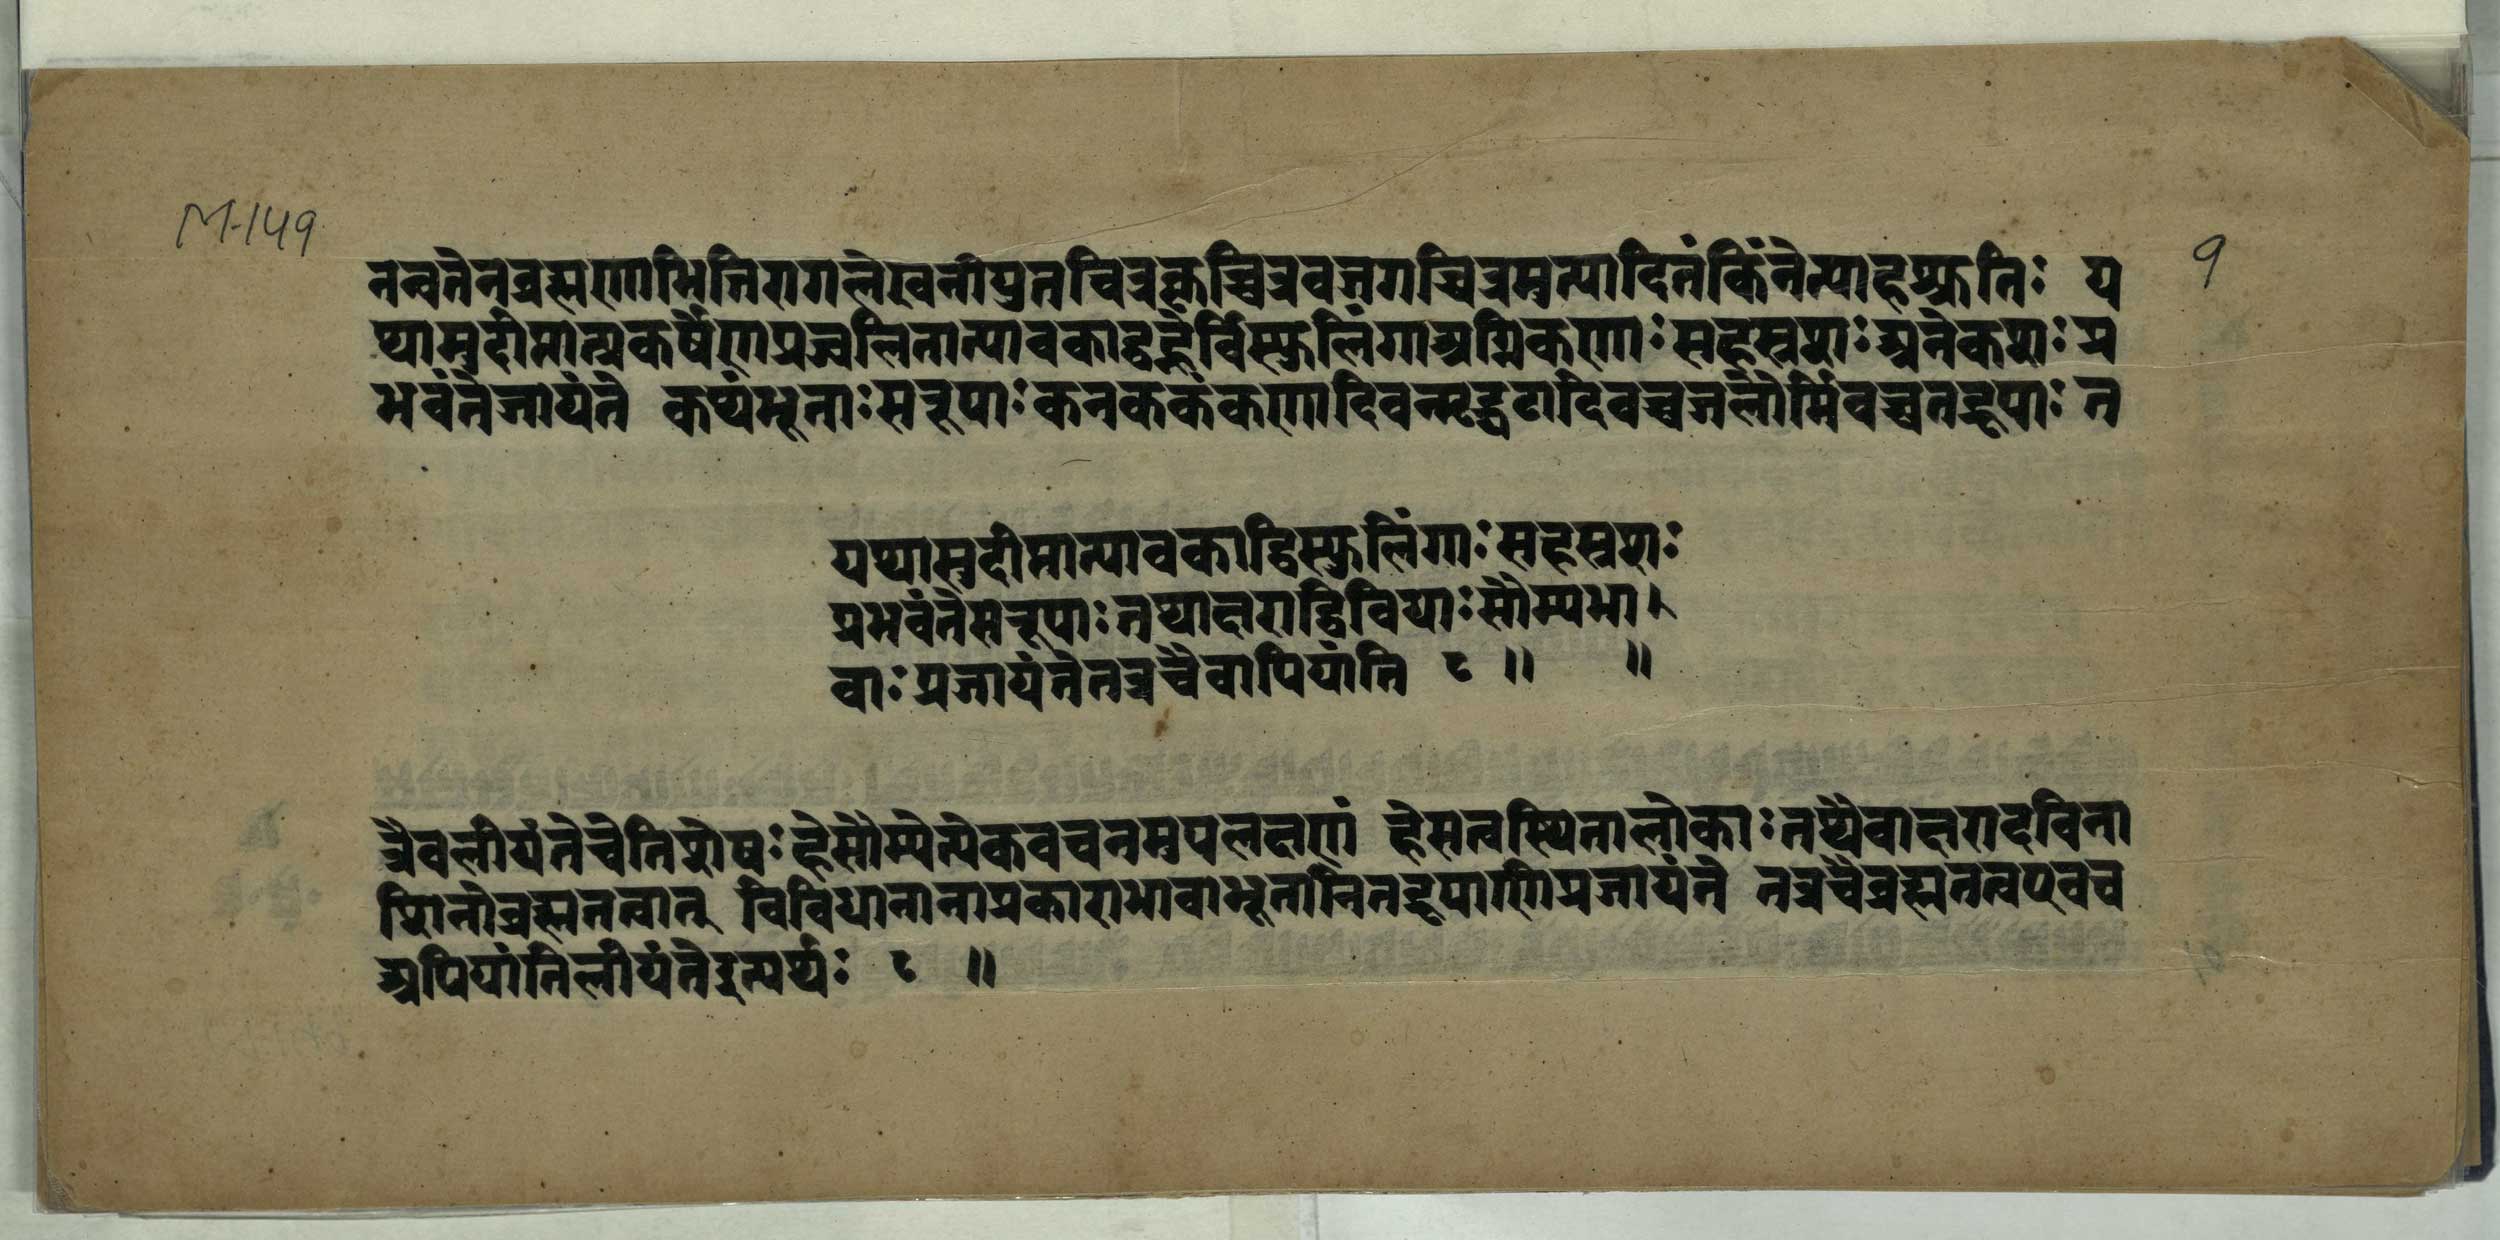 M-149
9
नन्वतेनब्रह्मणाभित्तिरागलेखनीयुतचित्रकृच्चित्रवज्जगच्चित्रमुत्पादितंकिंनेत्याहश्रुतिः य
थासुदीप्तात्प्रकर्षेणप्रज्वलितात्पावकाद्वह्नेर्विस्फुलिंगाअग्निकणाः सहस्रशः अनेकशः प्र
भवंतेजायंते कथंभूताः सरूपाः कनककंकणादिवन्मृद्घटादिवच्चजलोर्मिवच्चतद्रूपाः त
यथासुदीप्तात्पावकाद्विस्फुलिंगाः सहस्रशः
प्रभवंतेसरूपाः तथाक्षराद्विविधाः सौम्यभा।
वाः प्रजायंतेतत्रचैवापियांति ८ ॥ ॥
त्रैवलीयंतेचेतिशेषः हेसौम्येत्येकवचनमुपलक्षणं हेसत्वस्थितालोकाः तथैवाक्षरादविना
शिनोब्रह्मतत्वात् विविधानानाप्रकाराभावाभूतानितद्रूपाणिप्रजायंते तत्रचैब्रह्मतत्वएवच
अपियांतिलीयंतेइत्यर्थः ८ ॥